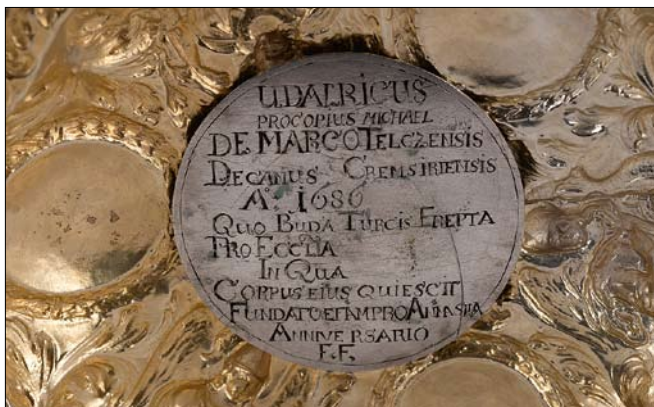 UDALRICUS
PROCOPIUS MICHAEL
DE MARCO TELCZENSIS
DECANUS CREMSIRIENSIS
Aº 1686
QUO BUDA TURCIS EREPTA
PRO ECCLIA
IN QUA
CORPUS EIUS QUIESCIT
FUNDATO ETIAM PRO ANIA SUA
ANNIVERSARIO
F.F.